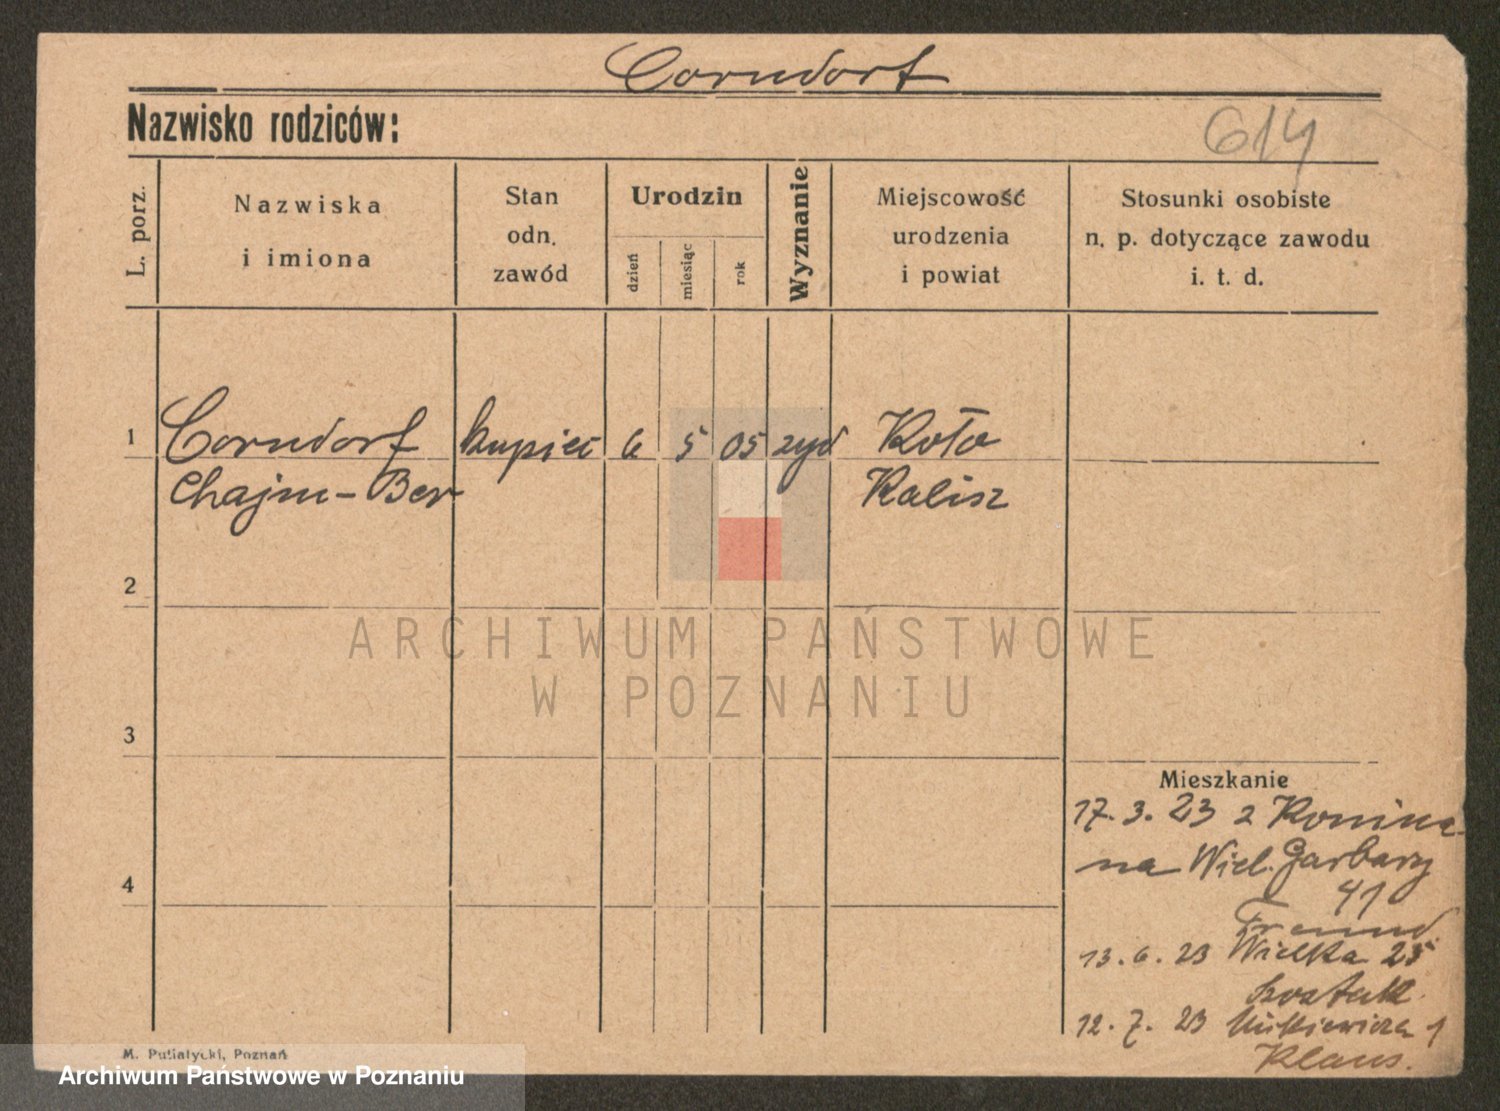 Corndorf
Nazwisko rodziców:
614
L. porz.
Nazwiska
i imiona
Stan
odn.
zawód
Urodzin
dzień
miesiąc
rok
Wyznanie
Miejscowość
urodzenia
i powiat
Stosunki osobiste
n. p. dotyczące zawodu
i. t. d.
1
Corndorf kupiec 6 5 05 żyd Koło
Chajm-Ber Kalisz
2
ARCHIWUM PAŃSTWOWE
W POZNANIU
3
Mieszkanie
17. 3. 23 z Konina
na Wiel. Garbary
4
41
Freund.
13. 6. 23 Wielka 25
12. 7. 23 1
Klaus.
M. Putiatycki, Poznań
Archiwum Państwowe w Poznaniu